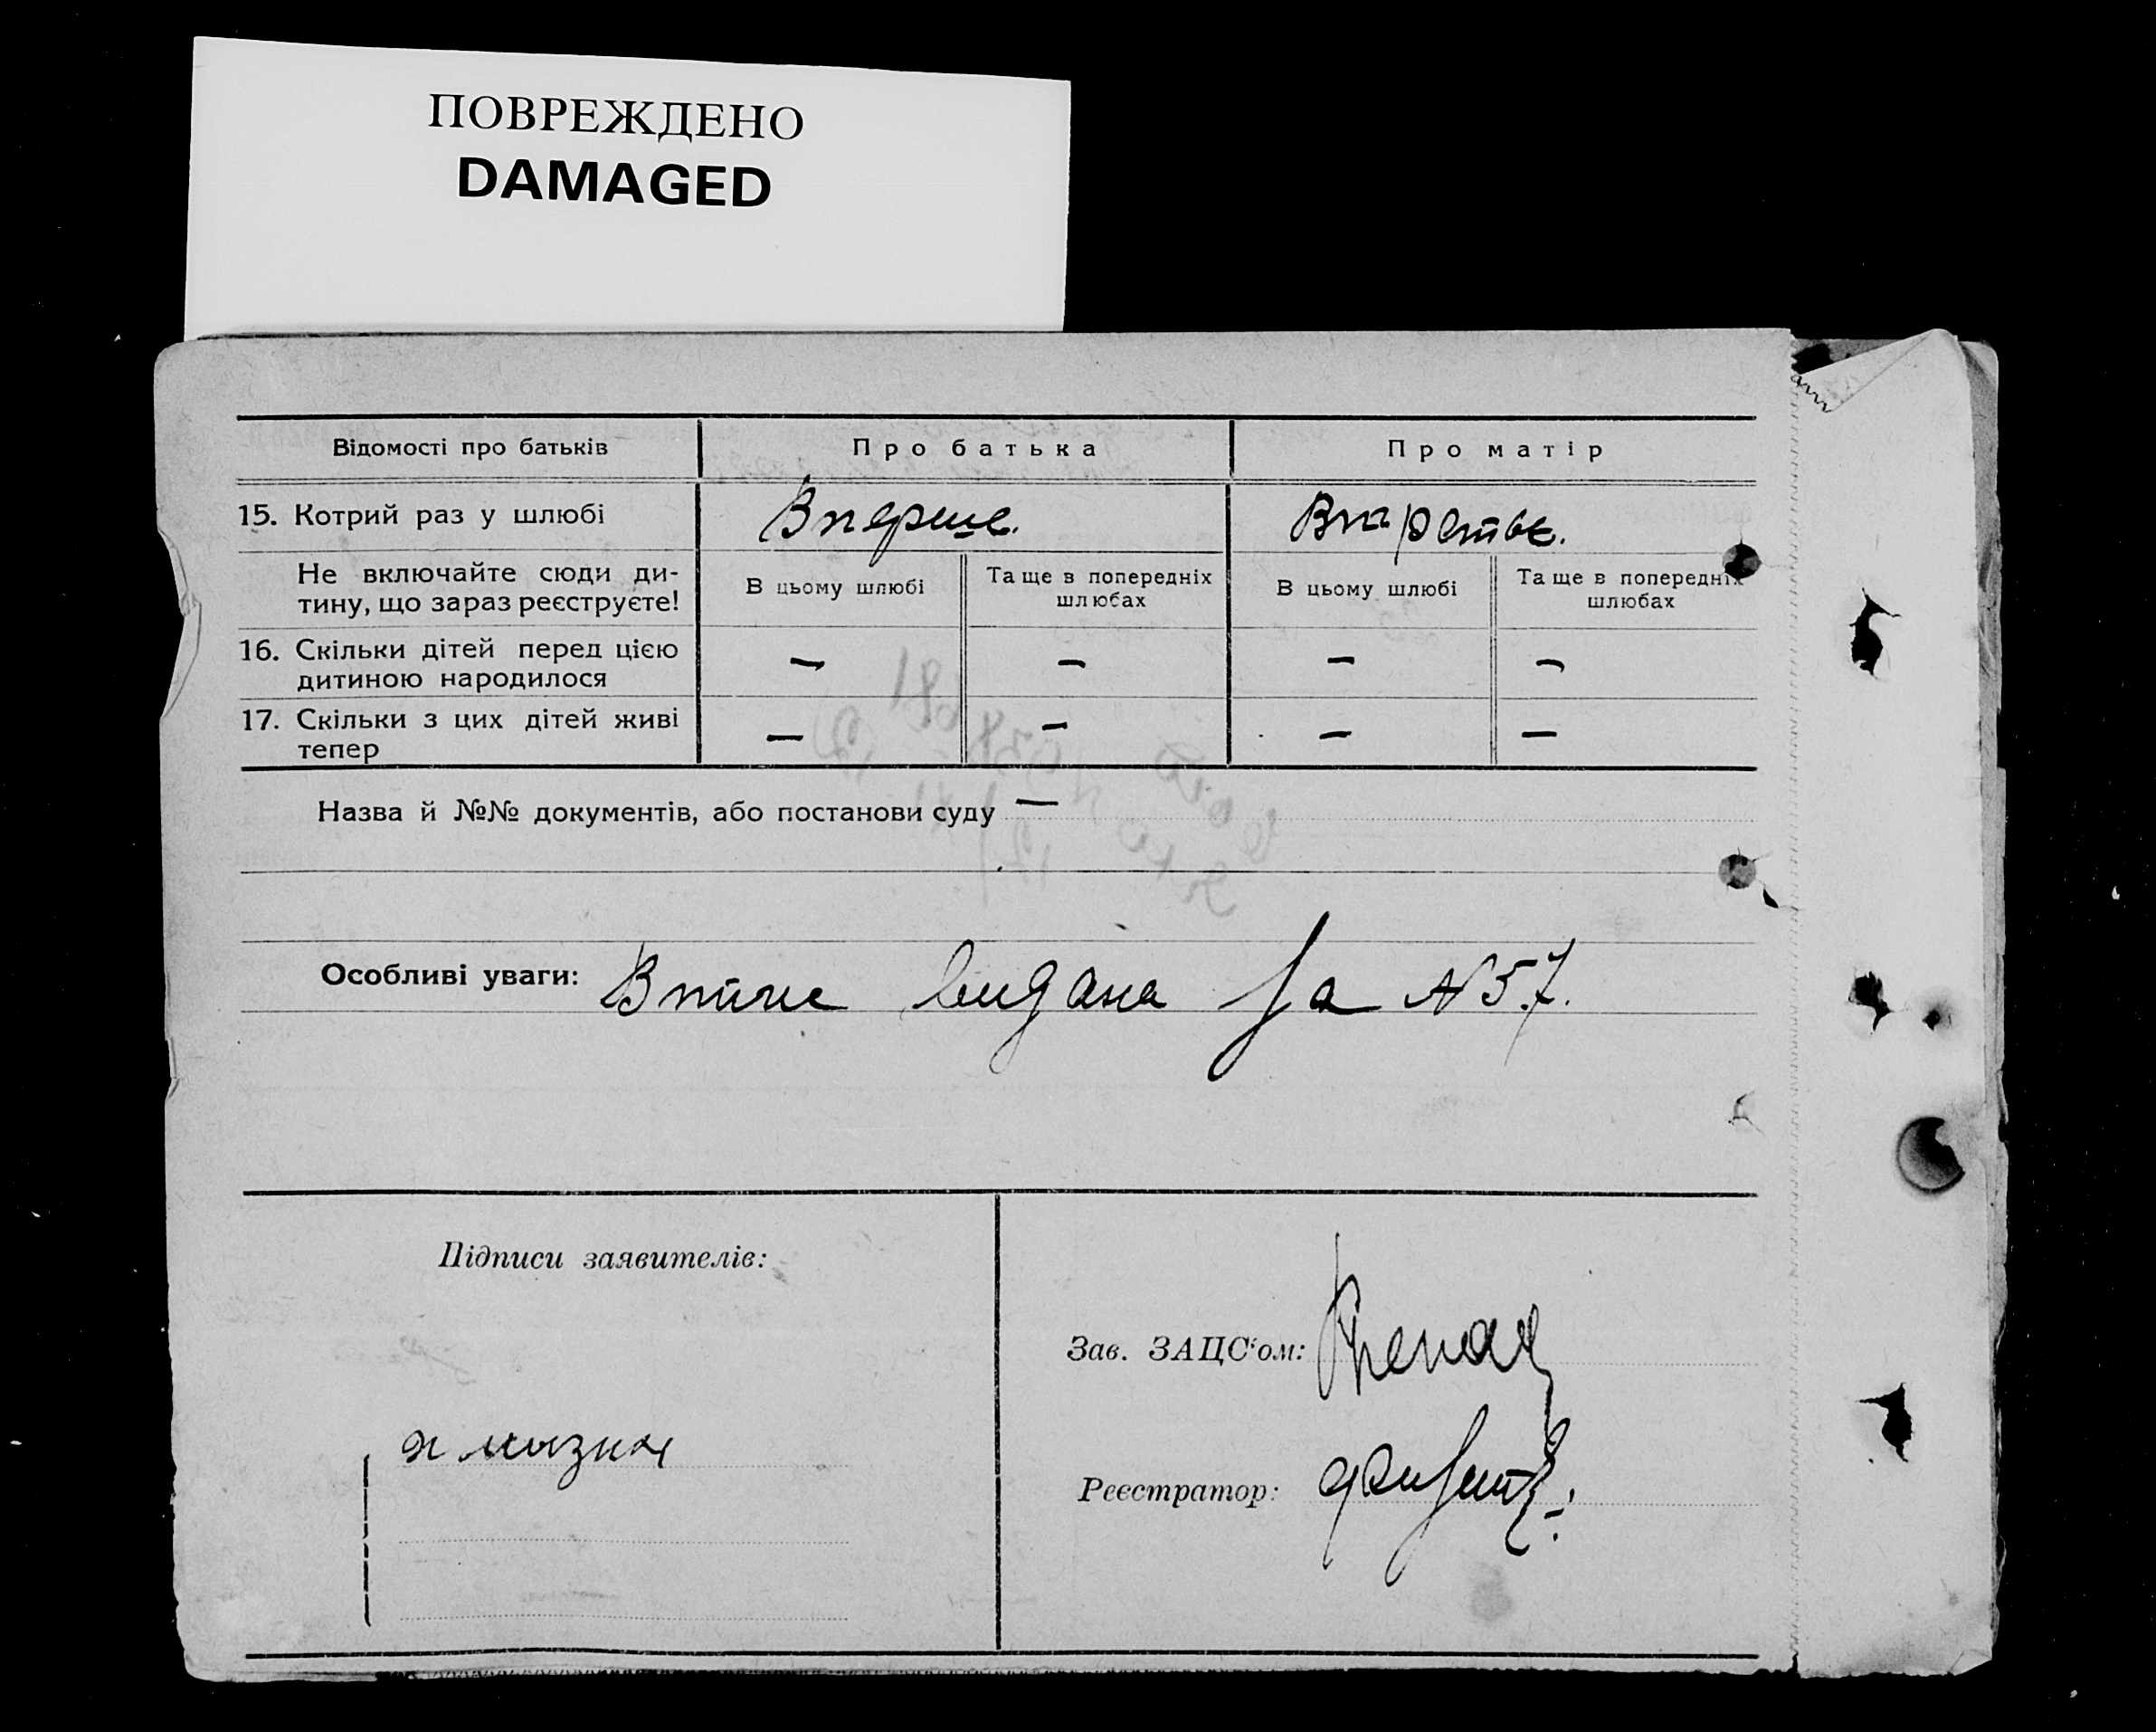 ПОВРЕЖДЕНО
DAMAGED
Відомості про батьків
Про батька
Про матір
15. Котрий раз у шлюбі
Вперше.
Не включайте сюди ди-
тину, що зараз реєструєте!
В цьому шлюбі
Та ще в попередніх
шлюбах
В цьому шлюбі
Та ще в попередніх
шлюбах
16. Скільки дітей перед цією
дитиною народилося
— — — —
17. Скільки з цих дітей живі
тепер
— — — —
Назва й №№ документів, або постанови суду —
Особливі уваги: видана за №57.
Підписи заявителів:
Зав. ЗАЦС'ом:
Реєстратор: